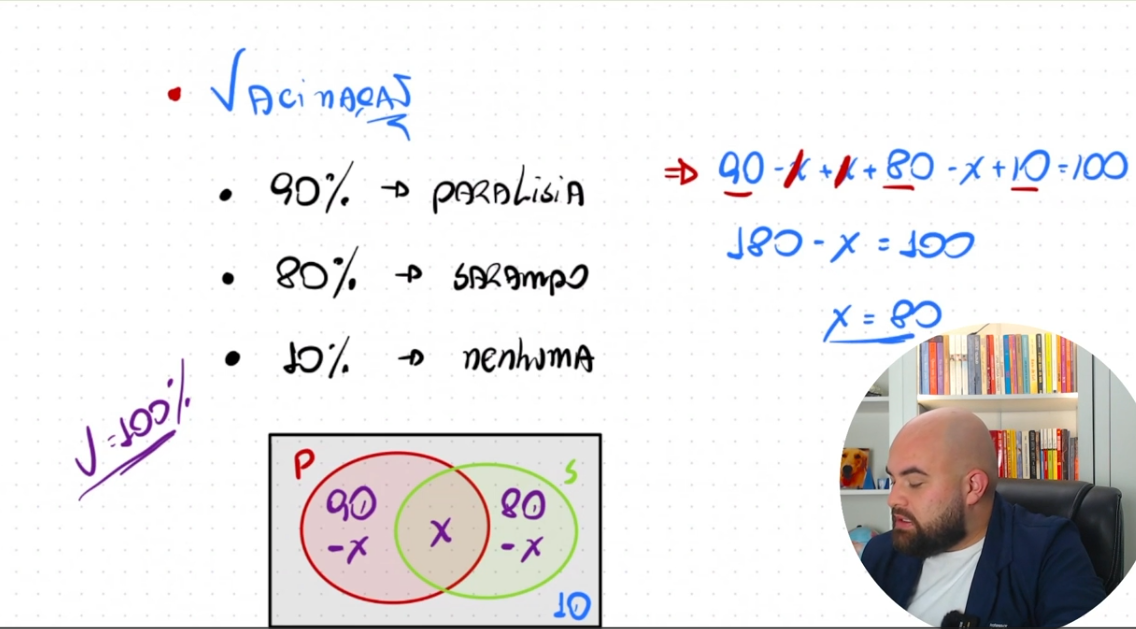 • VACINAÇAS
• 90% → PARALISIA
• 80% → SARAMPO
• 10% → NENHUMA
U=100%
P
S
90
-x
x
80
-x
10
⇒ 90-x+x+80-x+10=100
180-x=100
x=80